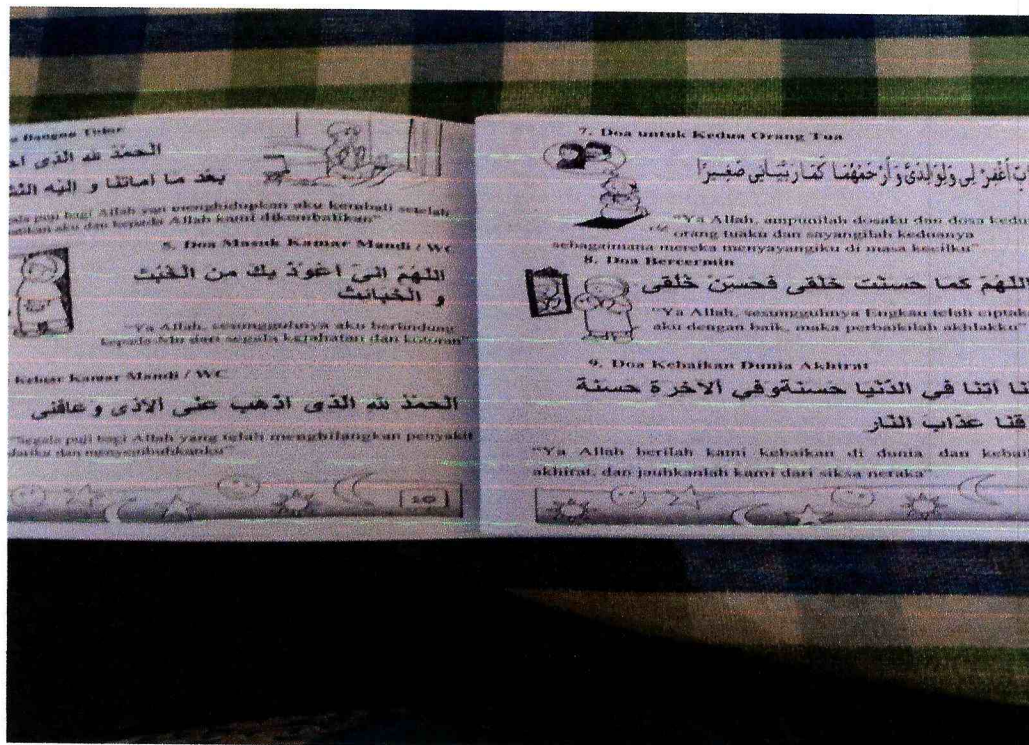 Bangun Tidur
الحمد لله الذى
بعد ما اماتنا و اليه
puji bagi Allah yan menghidupkan aku kembali setelah
aku dan kepada Allah kami dikembalikan"
5. Doa Masuk Kamar Mandi / WC
اللهم انى اعوذ بك من الخبث
و الخبائث
"Ya Allah, sesungguhnya aku berlindung
kepada-Mu dari segala kejahatan dan kotoran"
Keluar Kamar Mandi / WC
الحمد لله الذى اذهب عنى الاذى و عافنى
"Segala puji bagi Allah yang telah menghilangkan penyakit
dan menyembuhkanku"
7. Doa untuk Kedua Orang Tua
اغفر لى ولوالدى وارحمهما كما ربيانى صغيرا
"Ya Allah, ampunilah dosaku dan dosa
orang tuaku dan sayangilah keduanya
sebagaimana mereka menyayangiku di masa kecilku"
8. Doa Bercermin
اللهم كما حسنت خلقى فحسن خلقى
"Ya Allah, sesungguhnya Engkau telah
aku dengan baik, maka perbaikilah akhlakku"
9. Doa Kebaikan Dunia Akhirat
اتنا فى الدنيا حسنةوفي الاخرة حسنة
قنا عذاب النار
"Ya Allah berilah kami kebaikan di dunia dan
akhirat, dan jauhkanlah kami dari siksa neraka"